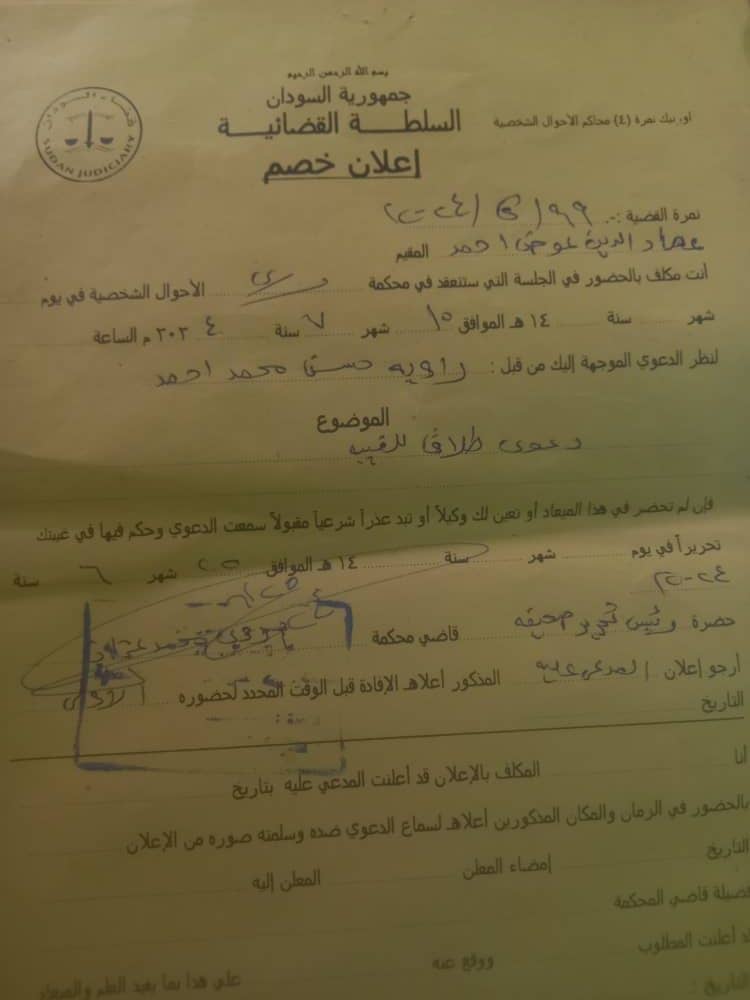 بسم الله الرحمن الرحيم
جمهورية السودان
السلطة القضائية
اورنيك نمرة (٤) محاكم الأحوال الشخصية
قضاء السودان
SUDAN JUDICIARY
إعلان خصم
نمرة القضية :-
عوض احمد المقيم
أنت مكلف بالحضور في الجلسة التي ستنعقد في محكمة الأحوال الشخصية في يوم
شهر سنة ١٤ هـ الموافق ١٥ شهر ٧ سنة ٢٠٢٤ م الساعة
لنظر الدعوي الموجهة إليك من قبل : راويه حسن محمد احمد
الموضوع
دعوى طلاق للغيبه
فإن لم تحضر في هذا الميعاد أو تعين لك وكيلاً أو تبد عذراً شرعياً مقبولاً سمعت الدعوي وحكم فيها في غيبتك
تحريراً في يوم شهر سنة ١٤ هـ الموافق شهر ٦ سنة
٢٠٢٤
حضرة رئيس تحرير صحيفه قاضي محكمة
أرجو إعلان المدعى عليه المذكور أعلاه الإفادة قبل الوقت المحدد لحضوره
التاريخ
أنا المكلف بالإعلان قد أعلنت المدعي عليه بتاريخ
بالحضور في الزمان والمكان المذكورين أعلاه لسماع الدعوي ضده وسلمته صوره من الإعلان
التاريخ إمضاء المعلن المعلن إليه
فضيلة قاضي المحكمة
قد أعلنت المطلوب ووقع عنه على هذا بما يفيد العلم والميعاد
التاريخ :